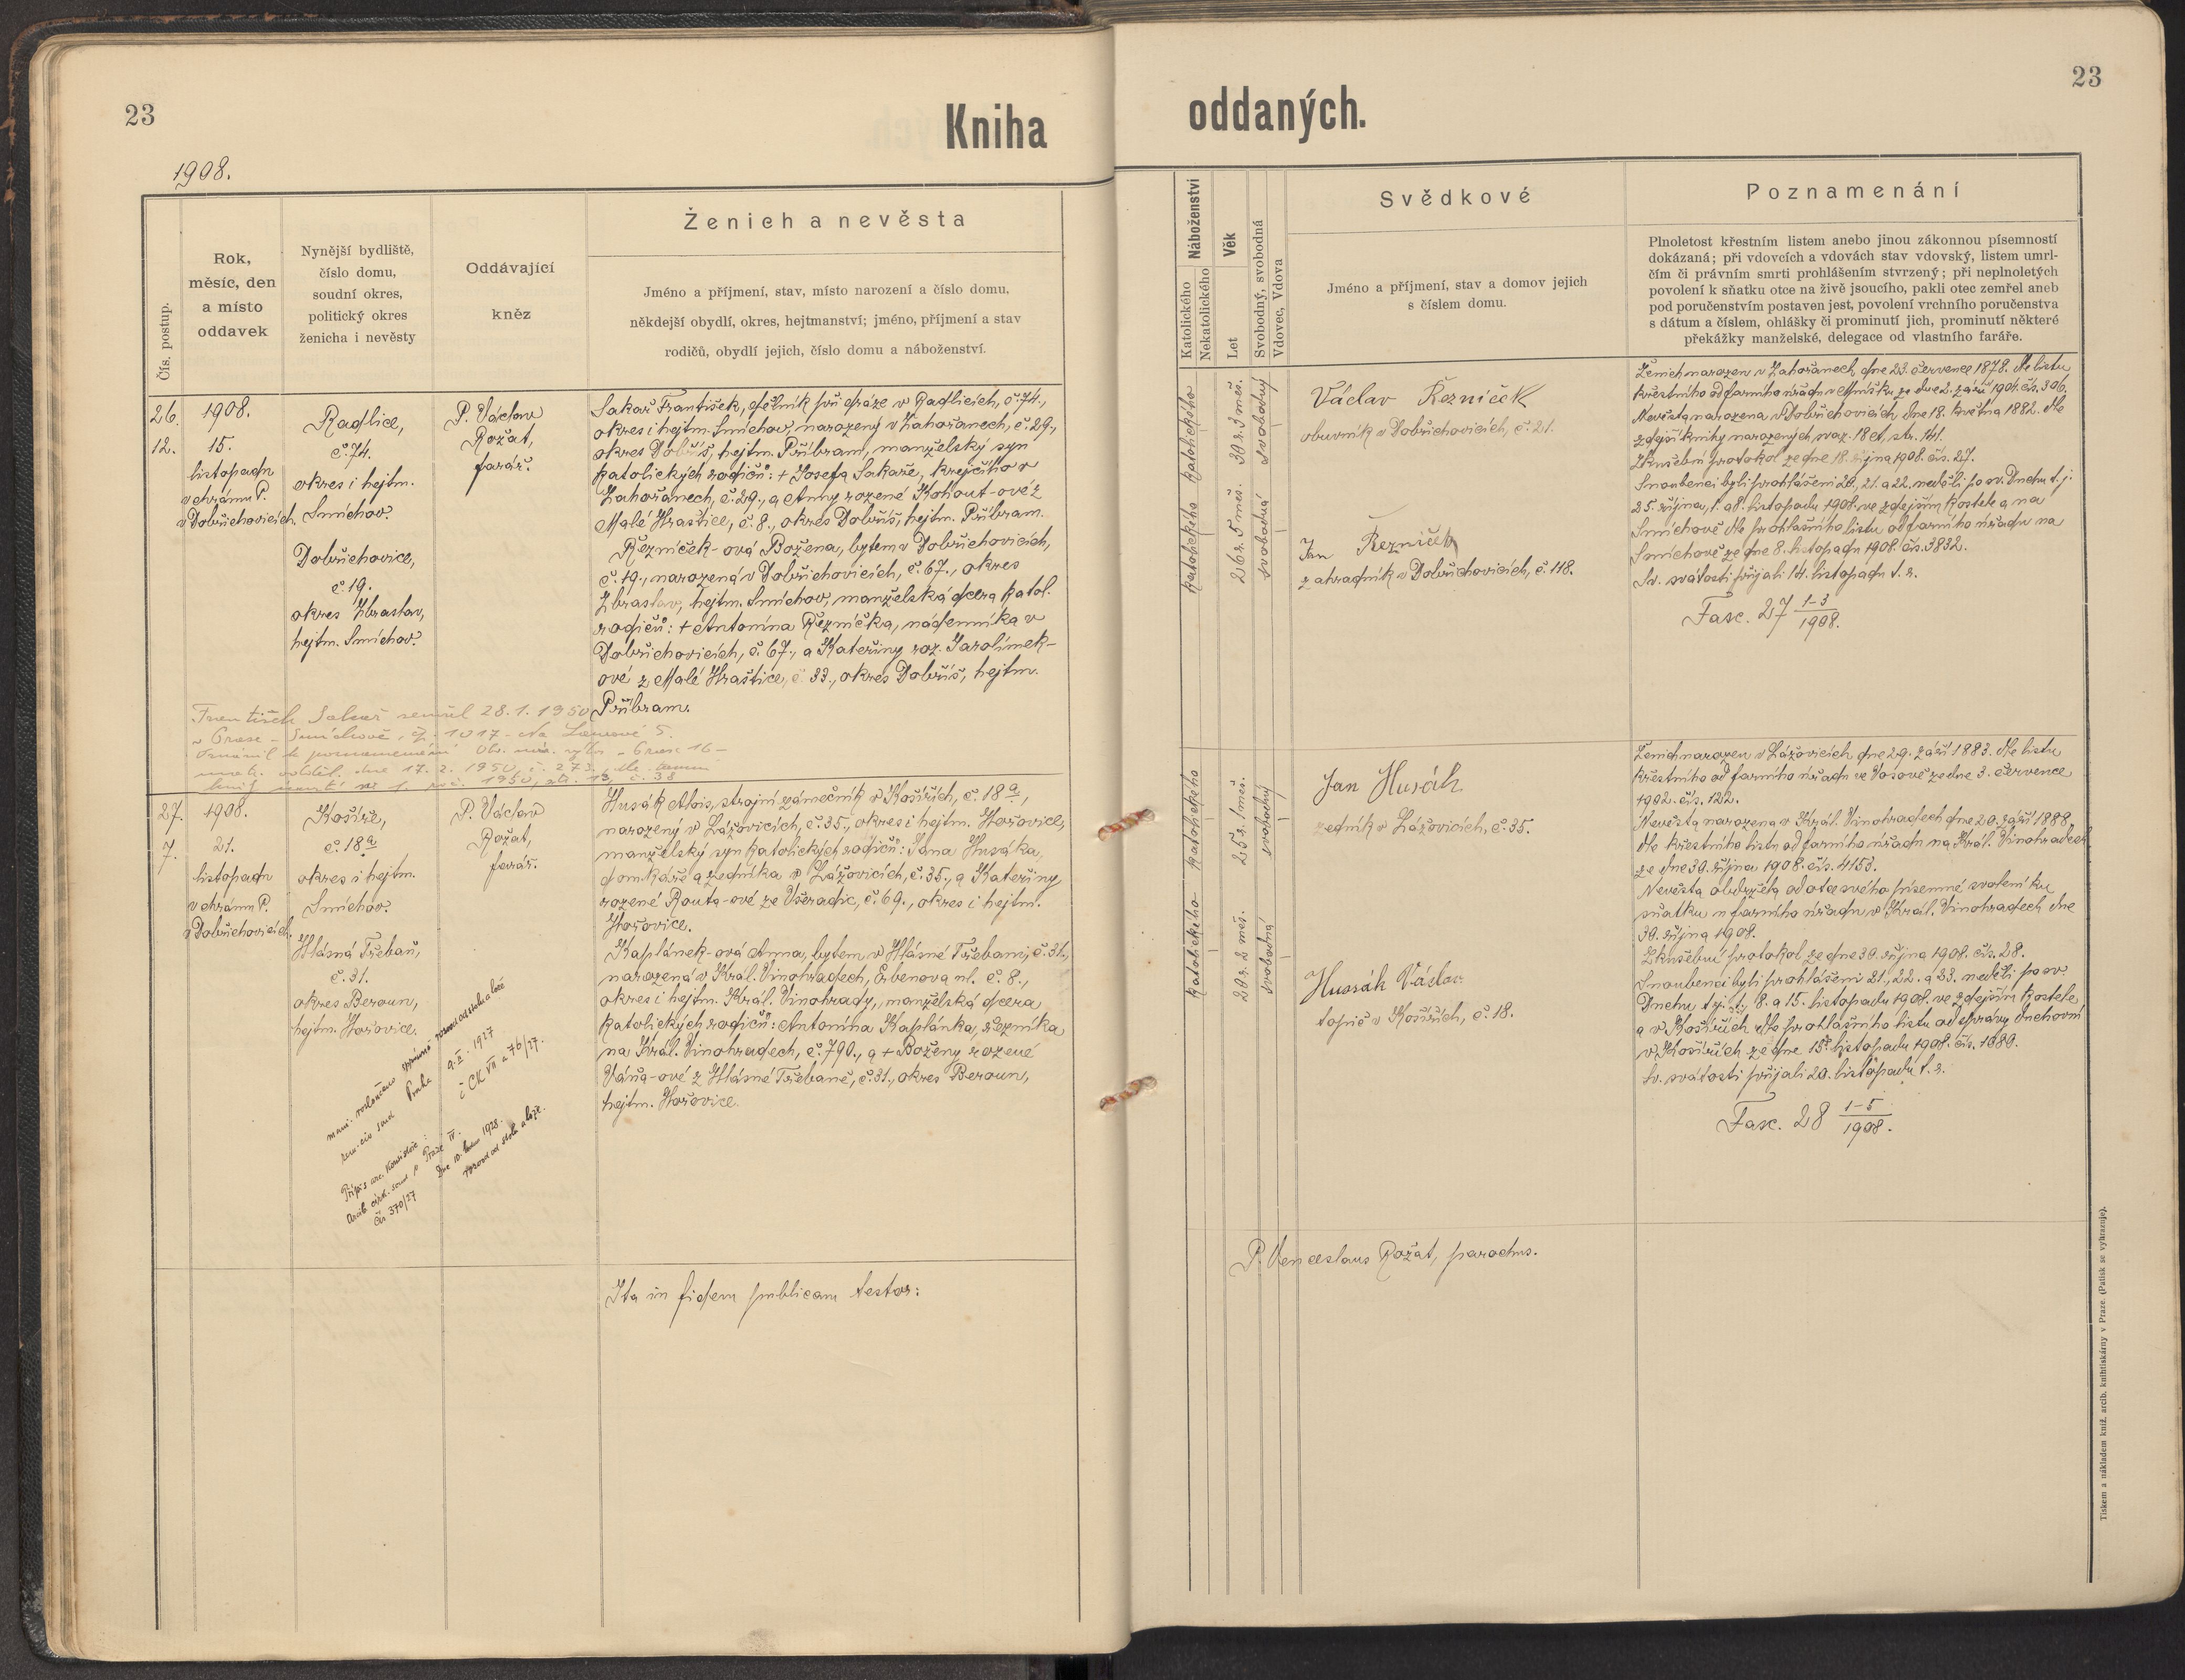 23
Kniha
1908.
Čís. postup.
Rok,
měsíc, den
a místo
oddavek
Nynější bydliště,
číslo domu,
soudní okres,
politický okres
ženicha i nevěsty
Oddávající
kněz
Ženich a nevěsta
Jméno a příjmení, stav, místo narození a číslo domu,
někdejší obydlí, okres, hejtmanství; jméno, příjmení a stav
rodičů, obydlí jejich, číslo domu a náboženství.
26.
12.
1908.
15.
listopadu
v chrámu P.
v Dobřichovicích.
Radlice,
č. 74.
okres i hejtm.
Smíchov.
Dobřichovice,
č. 19.
okres Zbraslav,
hejtm. Smíchov.
P. Václav
Rožat,
farář.
Sakař František, dělník při dráze v Radlicích, č. 74.,
okres i hejtm. Smíchov, narozený v Zahořanech, č. 29.,
okres Dobříš, hejtm. Příbram, manželský syn
katolických rodičů: + Josefa Sakaře, krejčího v
Zahořanech, č. 29., a Anny rozené Kohout-ové z
Malé Hraštice, č. 8., okres Dobříš, hejtm. Příbram.
Řezníček-ová Božena, bytem v Dobřichovicích,
č. 19., narozená v Dobřichovicích, č. 67., okres
Zbraslav, hejtm. Smíchov, manželská dcera katol.
rodičů: + Antonína Řezníčka, nádenníka v
Dobřichovicích, č. 67., a Kateřiny roz. Jarolímek-
ové z Malé Hraštice, č. 33., okres Dobříš, hejtm.
Příbram.
František Sakař zemřel 28. 1. 1950
v Praze - Smíchově, čp. 1017 - Na
Oznámil k poznamenání Praze 16 -
matr. odděl. dne 17. 2. 1950, č. 273, dle
knih 1950, str. 13, č. 38
27.
7.
1908.
21.
listopadu
v chrámu P.
v Dobřichovicích.
Košíře,
č. 18 a
okres i hejtm.
Smíchov.
Hlásná Třebaň,
č. 31.
okres Beroun,
hejtm. Hořovice.
P. Václav
Rožat,
farář.
Husák Alois, strojní zámečník v Košířích, č. 18 a,
narozený v Lážovicích, č. 35., okres i hejtm. Hořovice,
manželský syn katolických rodičů: Jana Husáka,
domkáře a zedníka v Lážovicích, č. 35., a Kateřiny
rozené Routa-ové ze Všeradic, č. 69., okres i hejtm.
Hořovice.
Kaplánek-ová Anna, bytem v Hlásné Třebani, č. 31.,
narozená v Král. Vinohradech, Erbenova ul. č. 8.,
okres i hejtm. Král. Vinohrady, manželská dcera
katolických rodičů: Antonína Kaplánka, řezníka
na Král. Vinohradech, č. 790., a + Boženy rozené
Váňa-ové z Hlásné Třebaně, č. 31., okres Beroun,
hejtm. Hořovice.
manž. rozloučeno rozvod od stolu a lože
zem. civ. soud Praha 9. II. 1927
č CK VII a 76/27.
Přípis arc. konsistoře:
Arcib. círk. soud v Praze IV.
čís 370/27 dne 10. 1928.
rozvod od stolu a lože.
Ita in fidem publicam testor:
23
oddaných.
Náboženství
Katolického
Nekatolického
Věk
Let
Svobodný, svobodná
Vdovec, Vdova
Svědkové
Jméno a příjmení, stav a domov jejich
s číslem domu.
Poznamenání
Plnoletost křestním listem anebo jinou zákonnou písemností
dokázaná; při vdovcích a vdovách stav vdovský, listem umrl-
čím či právním smrti prohlášením stvrzený; při neplnoletých
povolení k sňatku otce na živě jsoucího, pakli otec zemřel aneb
pod poručenstvím postaven jest, povolení vrchního poručenstva
s dátum a číslem, ohlášky či prominutí jich, prominutí některé
překážky manželské, delegace od vlastního faráře.
katolického
30 r. 3 měs.
svobodný
katolického
26 r. 5 měs.
svobodná
Václav Řezníček
obuvník v Dobřichovicích, č. 21.
Jan Řezníček
zahradník v Dobřichovicích, č. 118.
Ženich narozen v Zahořanech dne 23. července 1878. dle listu
křestního od farního úřadu v Mníšku ze dne 2. září 1904. čís. 306.
Nevěsta narozena v Dobřichovicích dne 18. května 1882. dle
zdejší knihy narozených svaz. 18 d, str. 141.
Zkušební protokol ze dne 18. října 1908. čís. 27.
Snoubenci byli prohlášeni 20., 21. a 22. neděli po sv. Duchu t. j.
25. října, 1. a 8. listopadu 1908. ve zdejším kostele a na
Smíchově dle prohlášního listu od farního úřadu na
Smíchově ze dne 8. listopadu 1908. čís. 3832.
Sv. svátosti přijali 14. listopadu t. r.
Fasc. 27 1-3/1908.
katolického
25 r. 1 měs.
svobodný
katolického
20 r. 2 měs.
svobodná
Jan Husák
zedník v Lážovicích, č. 35.
Husák Václav
topič v Košířích, č. 18.
Ženich narozen v Lážovicích dne 29. září 1883. dle listu
křestního od farního úřadu ve Vosově ze dne 3. července
1902. čís. 122.
Nevěsta narozena v Král. Vinohradech dne 20. září 1888.
dle křestního listu od farního úřadu na Král. Vinohradech
ze dne 30. října 1908. čís. 4153.
Nevěsta obdržela od otce svého písemné svolení ku
sňatku u farního úřadu v Král. Vinohradech dne
30. října 1908.
Zkušební protokol ze dne 30. října 1908. čís. 28.
Snoubenci byli prohlášeni 21., 22. a 23. neděli po sv.
Duchu t. j. 1., 8. a 15. listopadu 1908. ve zdejším kostele
a v Košířích dle prohlášního listu od správy duchovní
v Košířích ze dne 15. listopadu 1908. čís. 1089.
Sv. svátosti přijali 20. listopadu t. r.
Fasc. 28 1-5/1908.
P. Venceslaus Rožat, parochus.
Tiskem a nákladem kníž. arcib. knihtiskárny v Praze. (Patisk se vyhrazuje).